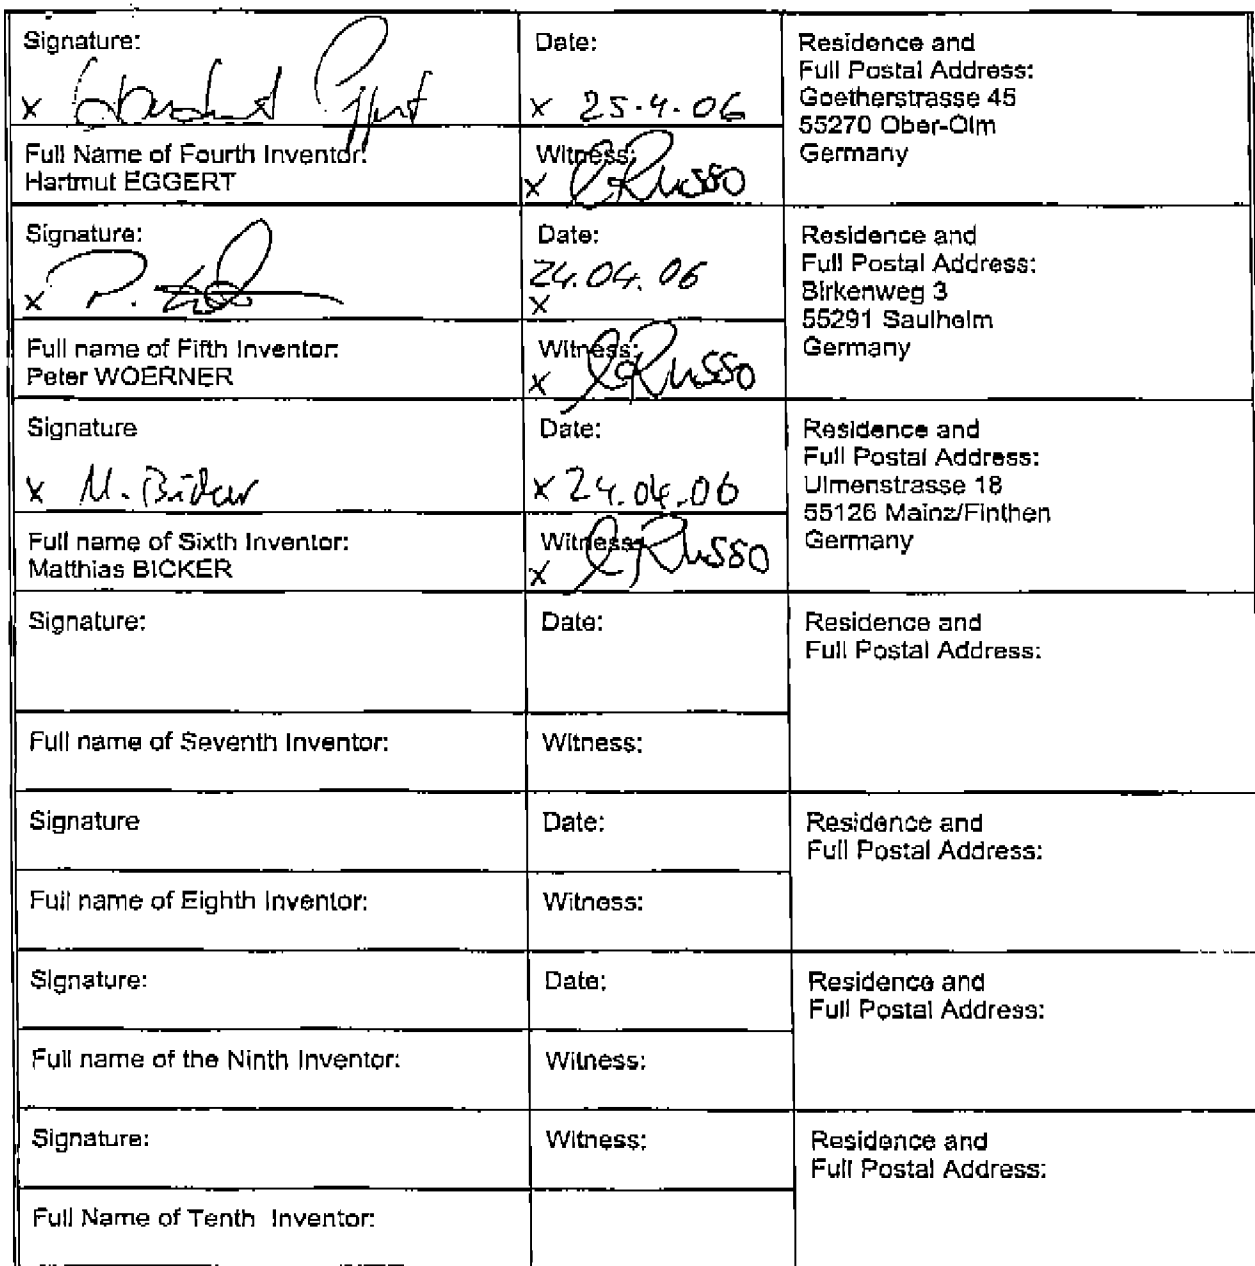 Signature:
x Hartmut Eggert
Date:
x 25.4.06
Residence and
Full Postal Address:
Goetherstrasse 45
55270 Ober-Olm
Germany
Full Name of Fourth Inventor:
Hartmut EGGERT
Witness:
x Russo
Signature:
x P.
Date:
24.04.06
x
Residence and
Full Postal Address:
Birkenweg 3
55291 Saulheim
Germany
Full name of Fifth Inventor:
Peter WOERNER
Witness:
x Russo
Signature
x M. Bicker
Date:
x 24.04.06
Residence and
Full Postal Address:
Ulmenstrasse 18
55126 Mainz/Finthen
Germany
Full name of Sixth Inventor:
Matthias BICKER
Witness:
x Russo
Signature:
Date:
Residence and
Full Postal Address:
Full name of Seventh Inventor:
Witness:
Signature
Date:
Residence and
Full Postal Address:
Full name of Eighth Inventor:
Witness:
Signature:
Date:
Residence and
Full Postal Address:
Full name of the Ninth Inventor:
Witness:
Signature:
Witness:
Residence and
Full Postal Address:
Full Name of Tenth Inventor: